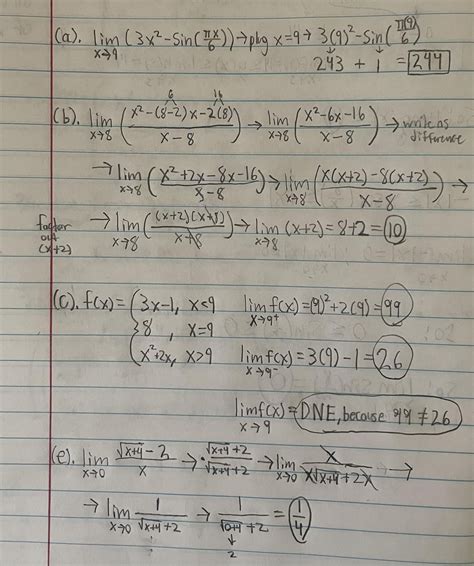 (a). lim x→9 (3x²-Sin(πx/6)) → plug x=9 → 3(9)²-Sin(π(9)/6)
243 + 1 = 244
6 16
(b). lim x→8 (x²-(8-2)x-2(8) / x-8) → lim x→8 (x²-6x-16 / x-8) → write as difference
→ lim x→8 (x²+2x-8x-16 / x-8) → lim x→8 (x(x+2)-8(x+2) / x-8) →
factor out (x+2)
→ lim x→8 ((x+2)(x-8) / x-8) → lim x→8 (x+2) = 8+2 = 10
(c). f(x) = { 3x-1, x<9 lim x→9⁺ f(x) = (9)²+2(9) = 99
8, x=9
x²+2x, x>9 lim x→9⁻ f(x) = 3(9)-1 = 26
lim x→9 f(x) = DNE, because 99 ≠ 26
(e). lim x→0 √(x+4) - 2 / x → · √(x+4) + 2 / √(x+4) + 2 → lim x→0 x / x√(x+4) + 2x →
→ lim x→0 1 / √(x+4) + 2 → 1 / √(0+4) + 2 = 1/4
2